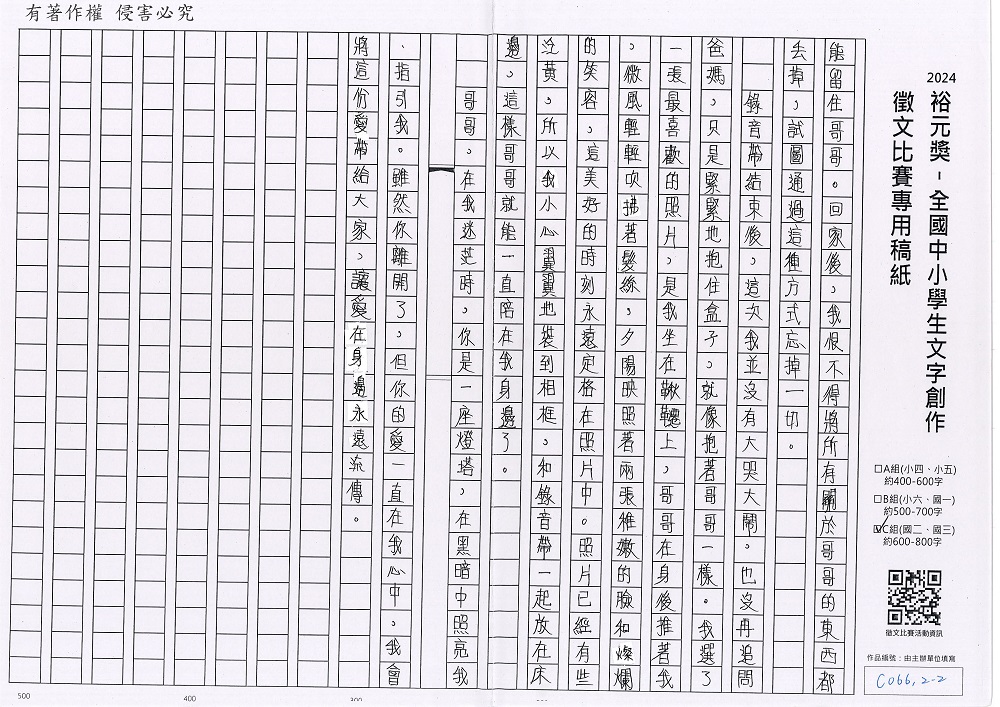 有著作權 侵害必究
2024
裕元獎-全國中小學生文字創作
徵文比賽專用稿紙
□A組(小四、小五)
約400-600字
□B組(小六、國一)
約500-700字
☑C組(國二、國三)
約600-800字
徵文比賽活動資訊
作品編號：由主辦單位填寫
C066,2-2
能留住哥哥。回家後，我恨不得將所有關於哥哥的東西都
丟掉，試圖通過這種方式忘掉一切。
錄音帶結束後，這次我並沒有大哭大鬧，也沒再追問
爸媽，只是緊緊地抱住盒子，就像抱著哥哥一樣。我選了
一張最喜歡的照片，是我坐在鞦韆上，哥哥在身後推著我
，微風輕輕吹拂著髮絲，夕陽映照著兩張稚嫩的臉和燦爛
的笑容，這美好的時刻永遠定格在照片中。照片已經有些
泛黃，所以我小心翼翼地裝到相框，和錄音帶一起放在床
邊，這樣哥哥就能一直陪在我身邊了。
哥哥，在我迷茫時，你是一座燈塔，在黑暗中照亮我
、指引我。雖然你離開了，但你的愛一直在我心中，我會
將這份愛帶給大家，讓愛在身邊永遠流傳。
500
400
300